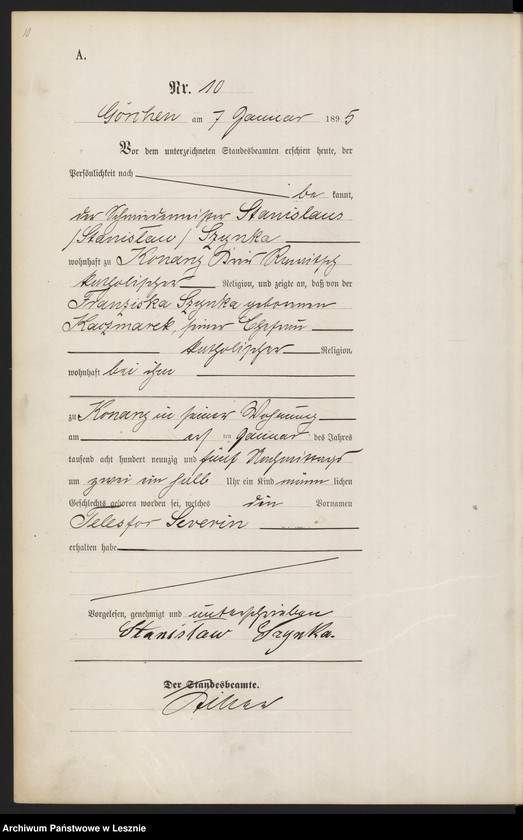 10
A.
Nr. 10
Görchen am 7 Januar 1895
Vor dem unterzeichneten Standesbeamten erschien heute, der
Persönlichkeit nach
be kannt,
der Schmiedemeister Stanislaus
/Stanislaw/ Szynka
wohnhaft zu Konary Kreis Rawitsch
katholischer Religion, und zeigte an, daß von der
Franziska Szynka geborenen
Kaczmarek, seiner Ehefrau
katholischer Religion,
wohnhaft bei ihm
zu Konary in seiner Wohnung
am ten Januar des Jahres
tausend acht hundert neunzig und fünf Nachmittags
um zwei ein halb Uhr ein Kind männ lichen
Geschlechts geboren worden sei, welches die Vornamen
Telesfor Severin
erhalten habe
Vorgelesen, genehmigt und unterschrieben
Stanisław Szynka.
Der Standesbeamte.
Archiwum Państwowe w Lesznie